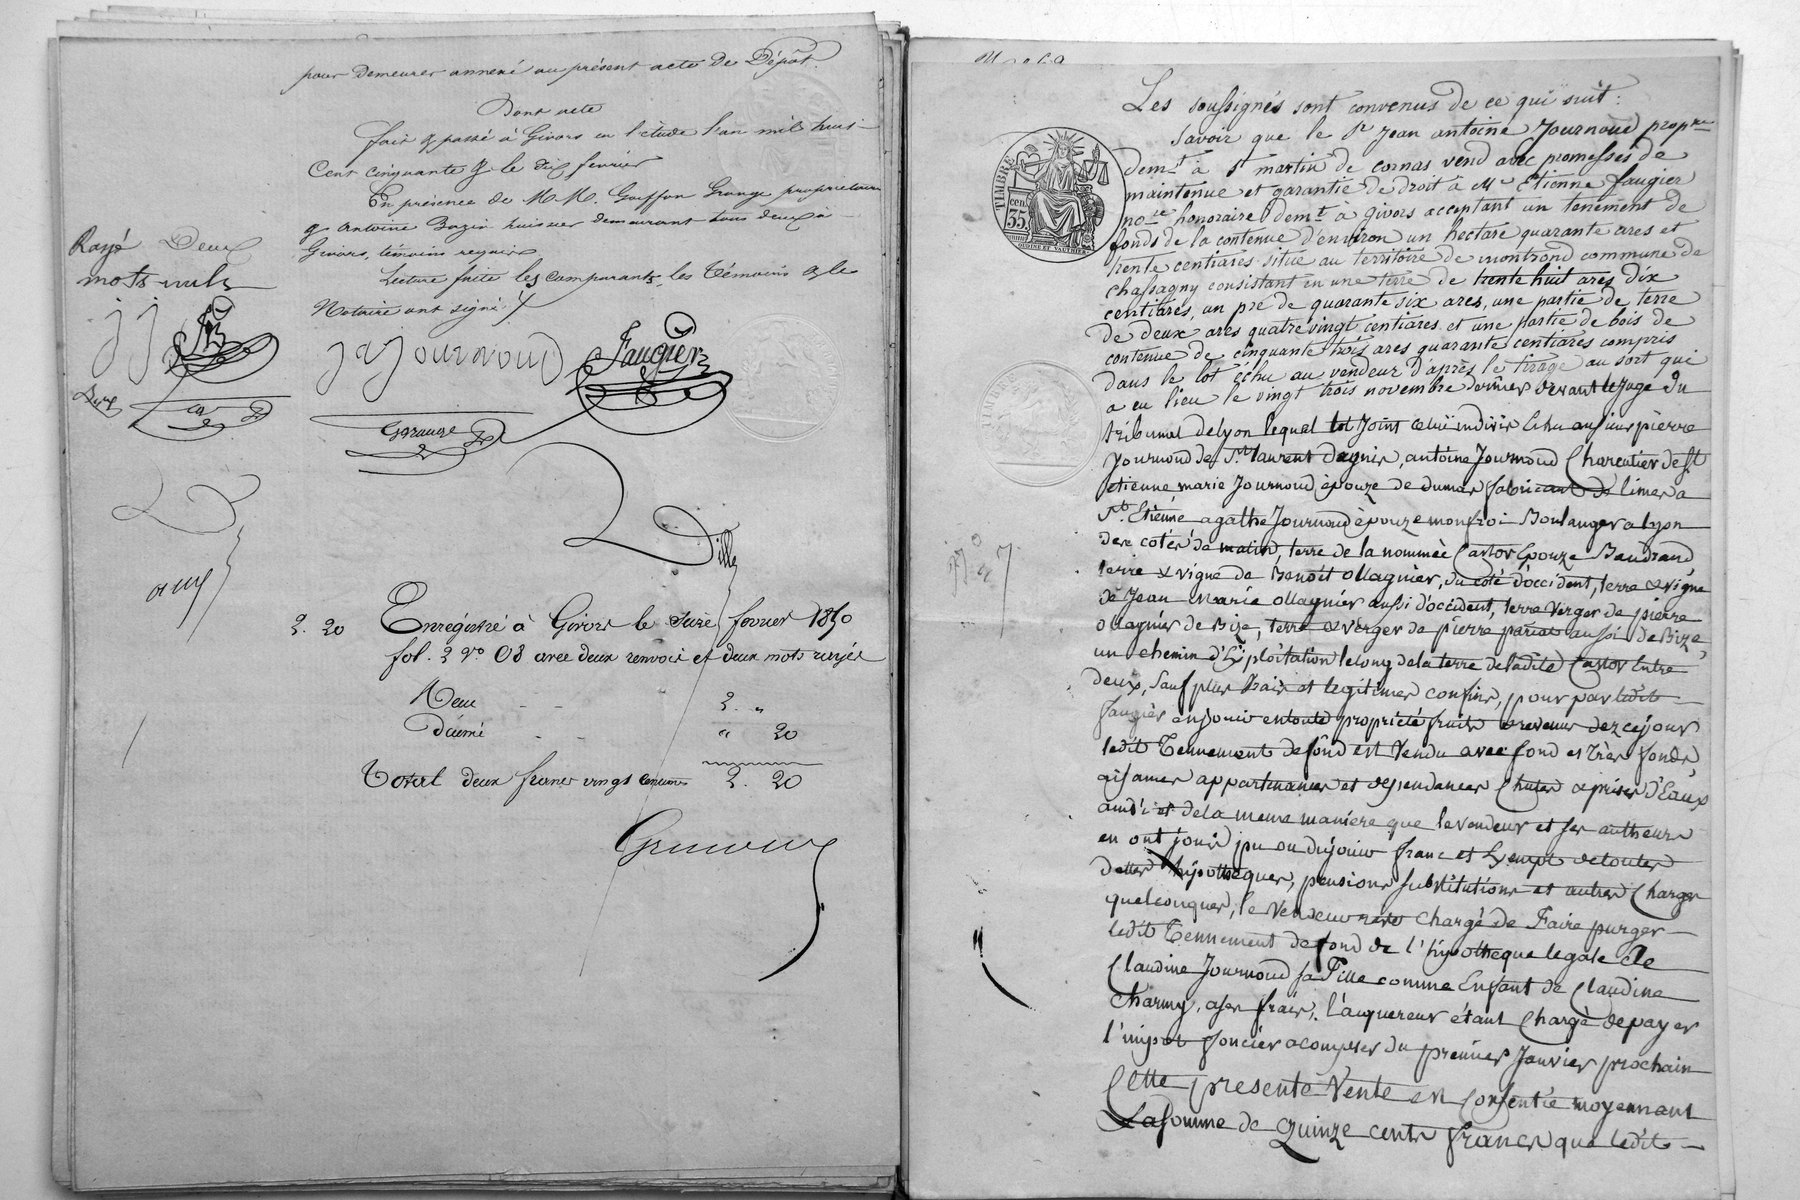 pour demeurer annexé au présent acte de Dépôt.
Dont acte
fait & passé à Givors en l'étude l'an mil huit
Cent cinquante & le dix fevrier
En présence de M. M. Goiffon Grange proprietaire
& Antoine Bazin huissier demeurant tous deux à
Givors, témoins requis
Lecture faite les comparants, les témoins & le
Notaire ont signé
Rayé Deux
mots nuls
j j
jA Journoud
Faugier
Grange
Dille
2. 20 Enregistré à Givors le seize fevrier 1850
fol. 2 Vo. C8 avec deux renvois et deux mots rayés
Reçu 2. "
Décime " 20
Total deux francs vingt centimes 2. 20
Les soussignés sont convenus de ce qui suit :
Savoir que le Sr Jean antoine Journoud propre
demt à St martin de cornas vend avec promesses de
maintenue et garantie de droit à Mr Etienne faugier
nore honoraire demt à givors acceptant un tenement de
fonds de la contenue d'environ un hectare quarante ares et
trente centiares situé au territoire de montrond commune de
chassagny consistant en une terre de trente huit ares dix
centiares, un pré de quarante six ares, une partie de terre
de deux ares quatre vingt centiares et une partie de bois de
contenue de cinquante trois ares quarante centiares compris
dans le lot échu au vendeur d'après le tirage au sort qui
a eu lieu le vingt trois novembre dernier devant le juge du
tribunal de lyon lequel lot joint celui indivis Echu au sieur pierre
Journoud de St laurent dagnis, antoine Journoud Charcutier de St
etienne marie Journoud épouze de dumas fabricant de limes a
St. Etienne agathe Journoud épouze monfroi Boulanger a lyon
des cotés de matin, terre de la nommée Castor Epouze Baudrand
terre & vigne de Benoît ollagnier, du coté d'occident, terre & vigne
de Jean Marie ollagnier aussi d'occident, terre verger de pierre
ollagnier de Bize, terre & verger de pierre pariat aussi de Bize,
un chemin d'Exploitation le long de la terre de ladite Castor Entre
deux, sauf plus vrais et legitimes confins, pour par ledit
faugier en jouir en toute propriété fruits & revenus dez ce jour
ledit Tennement de fond est vendu avec fond et très fonds,
aisances appartenances et dependances Chutes & prises d'Eaux
ainsi et de la meme maniere que le vendeur et ses autheurs
en ont joui pu ou du jouir franc et Exempt de toutes
dettes hypotheques, pensions substitutions et autres Charges
quelconques, le Vendeur reste chargé de Faire purger
ledit Tennement de fond de l'hypotheque legale de
Claudine Journoud sa Fille comme Enfant de Claudine
Charmy, a ses frais, l'acquereur étant Chargé de payer
l'impot foncier a compter du premier Janvier prochain
Cette presente Vente est Consentie moyennant
La somme de Quinze cents francs que ledit
TIMBRE
cen.
35